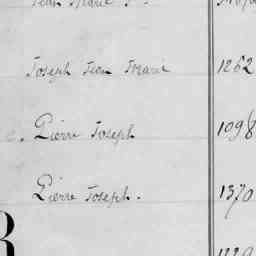 Jean Marie
Joseph Jean Marie 1262
Pierre Joseph 1098
Pierre Joseph. 1370